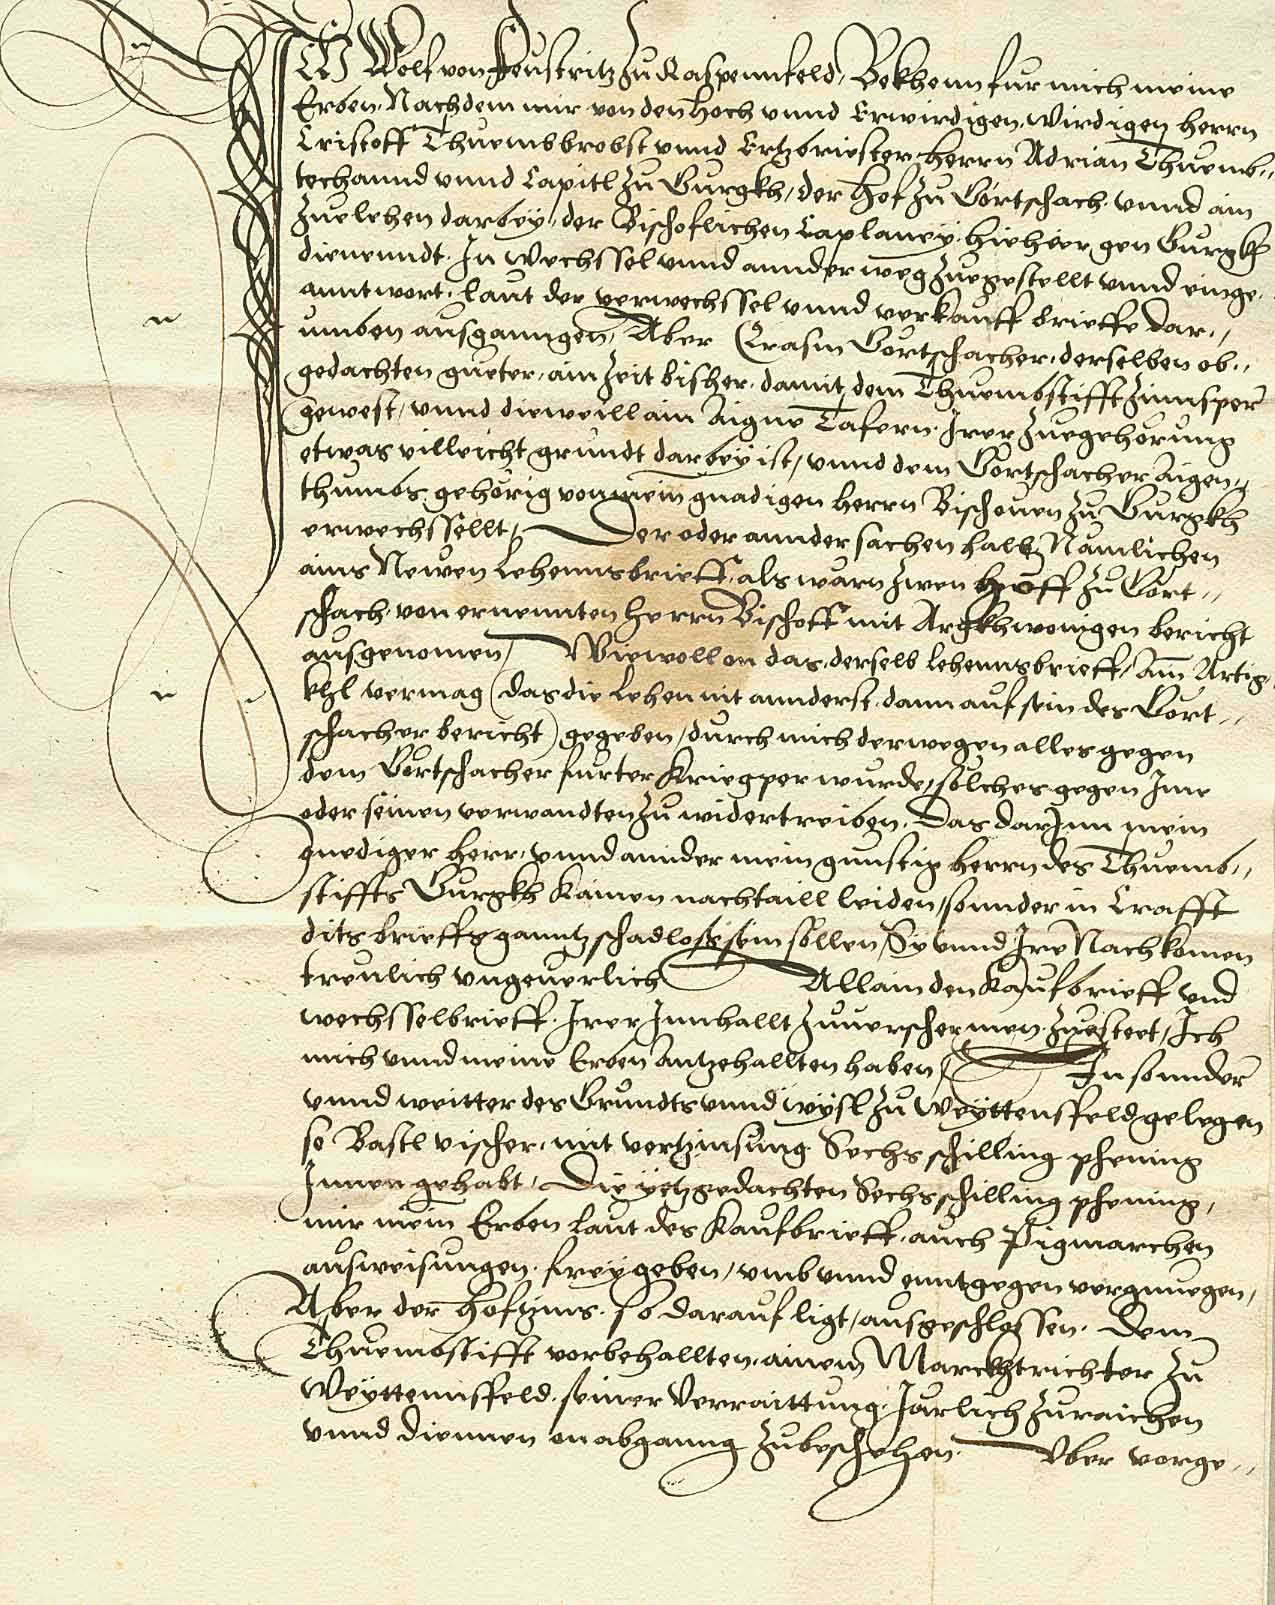 Ich Wolf von Feustritz zu Raspennfeld, Bekhenn fur mich meine
Erben, Nachdem mir von den hoch vnnd Erwirdigen, wirdigen herrn
Cristoff Thuembbrobst vnnd Ertzbriester, herrn Adrian Thuemb„
techannd vnnd Capitl zu Gurgkh, der hof zu Gortschach, vnnd ain
zuelehen darbey, der Bischoflichen Caplaney, hiehieer gen Gurgkh
dienenndt. In wechssel vnnd annder weg zuegestellt vnnd einge„
anntwort, laut der verwechssel vnnd verkauff brieffe dar„
umben ausganngen, Aber Erasm Gortschacher, derselben ob„
gedachten gueter, ain zeit bisher, damit dem Thuembstifft zinnsper
gewest, vnnd dieweill ain Aigne Tafern, Irer zuegehörung
etwas villeicht grundt darbey ist, vnnd dem Gortschacher Aigen„
thumbs gehörig von mein gnadigen herrn Bischouen zu Gurgkh
erwechssellt, Der oder annder sachen halb, Nämlichen
ains Newen Lehennsbrieff, als warn zwen höff zu Gort„
schach, von ernennten herrn Bischoff mit Argkhwonigen bericht
ausgenomen, Wiewoll on das, derselb Lehennsbrieff, ain Artig„
khl vermag (das die Lehen nit annderst, dann auf sein des Gort„
schacher bericht) gegeben, durch mich derwegen alles gegen
dem Gortschacher furter kriegper wurde, solches gegen Ime
oder seinen verwandten zu widertreiben. Das darInn mein
gnediger herr, vnnd annder mein gunstig herrn des Thuemb„
stiffts Gurgkh kainen nachtaill leiden, sonnder in Crafft
dits brieffs ganntz schadloss sein sollen, Sy vnnd Ire Nachkomen
treulich vngeuerlich Allain den kaufbrieff vnd
wechsselbrieff. Irer Innhallt zuuerschermen zuesteet, Ich
mich vnnd meine Erben Antzehallten haben, In sonnder
vnnd weitter des Grundts vnnd wysl zu Weyttensfeld gelegen
so Bastl vischer, mit vertzinsung Sechs schilling phening
Innen gehabt, Die yetzgedachten Sechs schilling phening,
mir mein Erben laut des kaufbrieff, auch Pigmarchen
ausweisungen, frey geben, vmb vnnd enntgegen vergnuegen,
Aber der hoftzins, so darauf ligt, ausgeschlossen. Dem
Thuembstifft vorbehallten, ainem Marckhtrichter zu
Weyttennsfeld, seiner Verraittung, Jarlich zuraichen
vnnd diennen on abganng zubeschehen. Vber vorge„